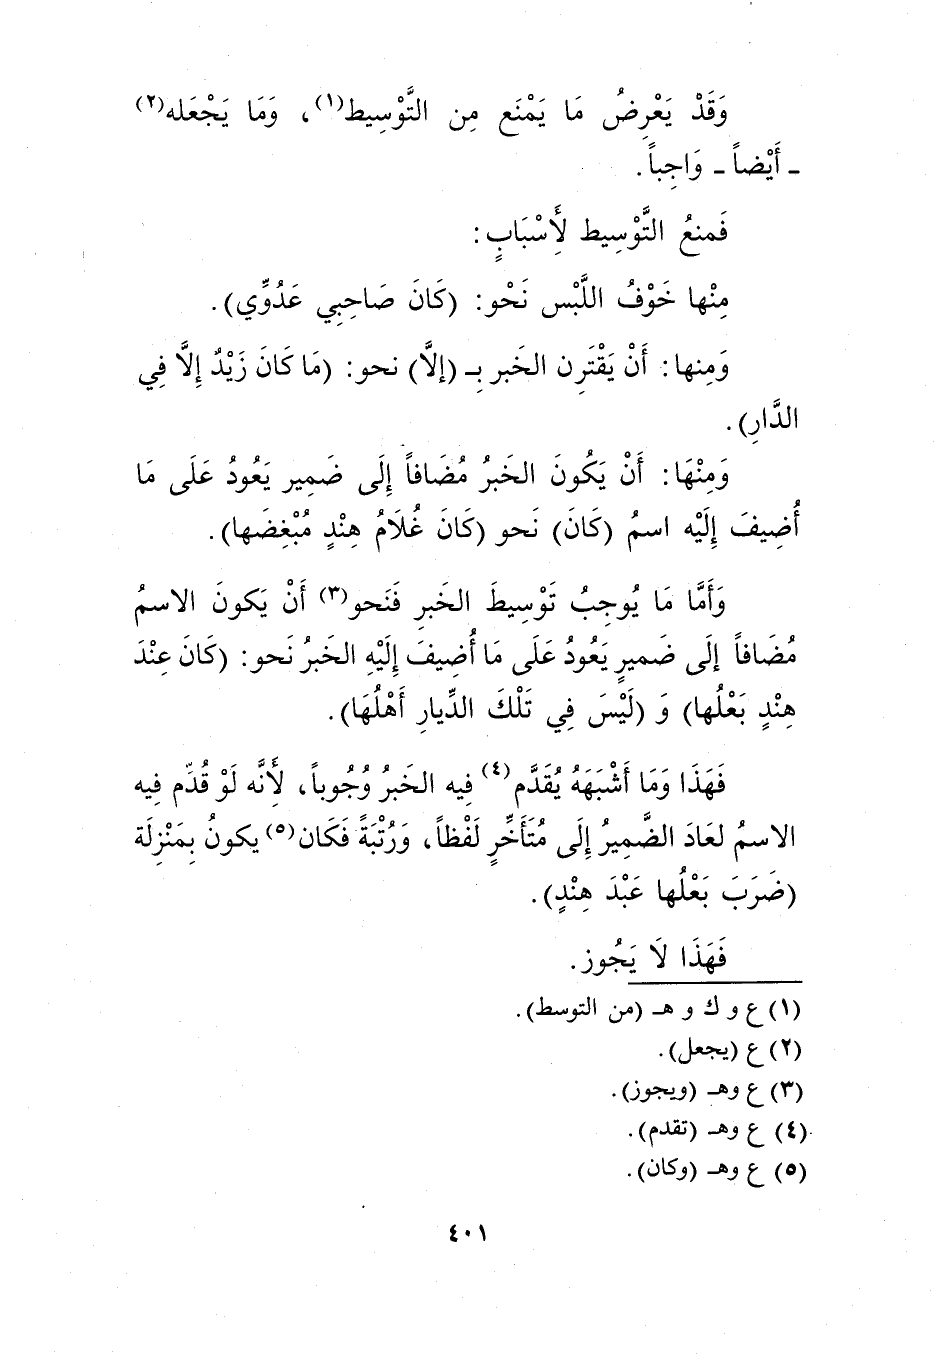 وَقَدْ يَعْرِضُ مَا يَمْنَع مِن التَّوْسِيط(١)، وَمَا يَجْعَله(٢)
ـ أَيْضاً ـ وَاجِباً.
فَمنعُ التَّوْسِيط لِأَسْبَابٍ:
مِنْها خَوْفُ اللَّبْس نَحْو: (كَانَ صَاحِبِي عَدُوِّي).
وَمِنها: أَنْ يَقْتَرِن الخَبر بِـ (إلَّا) نحو: (مَا كَانَ زَيْدٌ إِلَّا فِي
الدَّارِ).
وَمِنْهَا: أَنْ يَكُونَ الخَبَرُ مُضَافاً إِلَى ضَمِير يَعُودُ عَلَى مَا
أُضِيفَ إِلَيْه اسمُ (كَانَ) نَحو (كَانَ غُلَامُ هِنْدٍ مُبْغِضَها).
وَأَمَّا مَا يُوجِبُ تَوْسِيطَ الخَبرِ فَنَحو(٣) أَنْ يَكونَ الاسمُ
مُضَافاً إلَى ضَميرٍ يَعُودُ عَلَى مَا أُضِيفَ إِلَيْهِ الخَبرُ نَحو: (كَانَ عِنْدَ
هِنْدٍ بَعْلُها) وَ (لَيْسَ فِي تَلْكَ الدِّيارِ أَهْلُهَا).
فَهَذَا وَمَا أَشْبَهَهُ يُقَدَّم(٤) فِيه الخَبرُ وُجُوباً، لِأَنَّه لَوْ قُدِّم فِيه
الاسمُ لعَادَ الضَّمِيرُ إِلى مُتَأَخِّرٍ لَفْظاً، وَرُتْبَةً فَكَان(٥) يكونُ بِمَنْزِلَة
(ضَرَبَ بَعْلُها عَبْدَ هِنْدٍ).
فَهَذَا لَا يَجُوز.
(١) ع و ك و هـ (من التوسط).
(٢) ع (يجعل).
(٣) ع وهـ (ويجوز).
(٤) ع وهـ (تقدم).
(٥) ع وهـ (وكان).
٤٠١